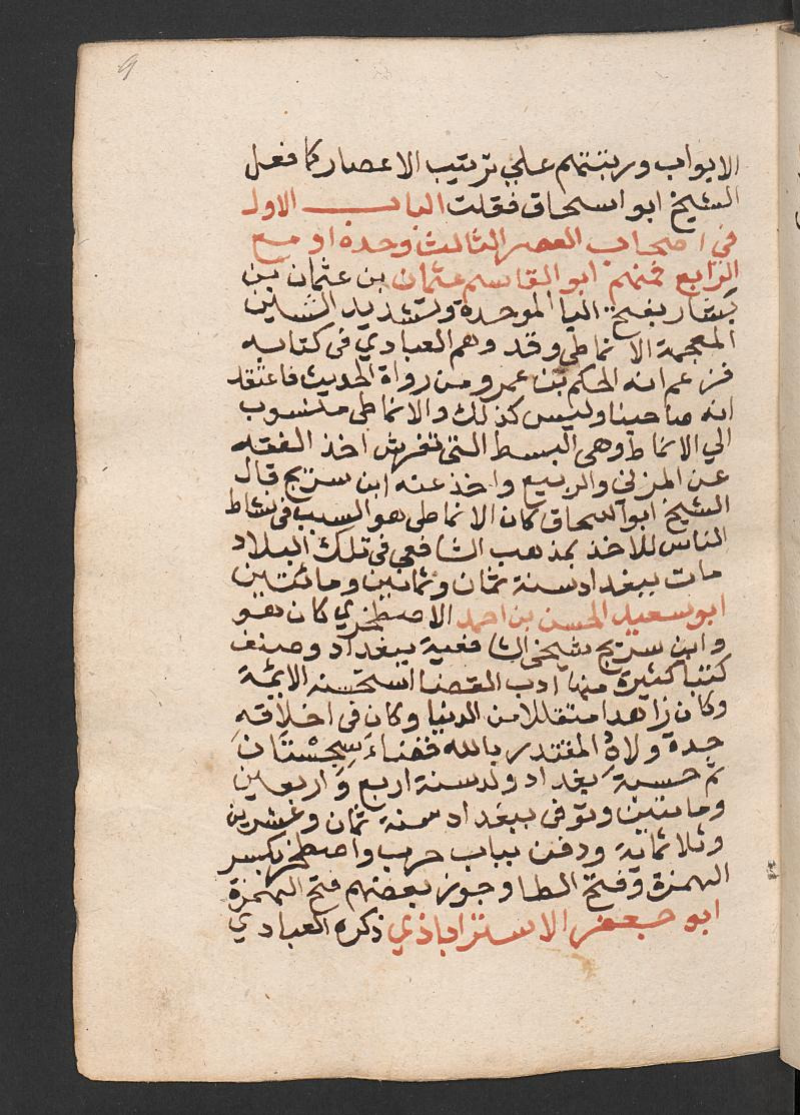 9
الابواب ورتبتهم علي ترتيب الاعصار كما فعل
الشيخ ابو اسحاق فقلت الباب الاول
في اصحاب العصر الثالث وحده او مع
الرابع فمنهم ابو القاسم عثمان بن عثمان بن
بشار بفتح اليا الموحدة وتشديد الشين
المعجمة الانماطي وقد وهم العبادي في كتابه
فزعم انه الحكم بن عمرو من رواة الحديث فاعتقد
انه صاحبنا وليس كذلك والانماطي منسوب
الي الانماط وهي البسط التي تفرش اخذ الفقه
عن المزني والربيع واخذ عنه ابن سريج قال
الشيخ ابو اسحاق كان الانماطي هو السبب في نشاط
الناس للاخذ بمذهب الشافعي في تلك البلاد
مات ببغداد سنة ثمان وثمانين ومائتين
ابو سعيد الحسن بن احمد الاصطخري كان هو
وابن سريج شيخي الشافعية ببغداد وصنف
كتبا كثيرة منها ادب القضا استحسنه الايمة
وكان زاهدا متقللا من الدنيا وكان في اخلاقه
حدة ولاه المقتدر بالله قضاء سجستان
ثم حسبة بغداد ولد سنة اربع واربعين
ومائتين وتوفي ببغداد سنة ثمان وعشرين
وثلاثماية ودفن بباب حرب واصطخر بكسر
الهمزة وفتح الطا وجوز بعضهم فتح الهمزة
ابو جعفر الاستراباذي ذكره العبادي